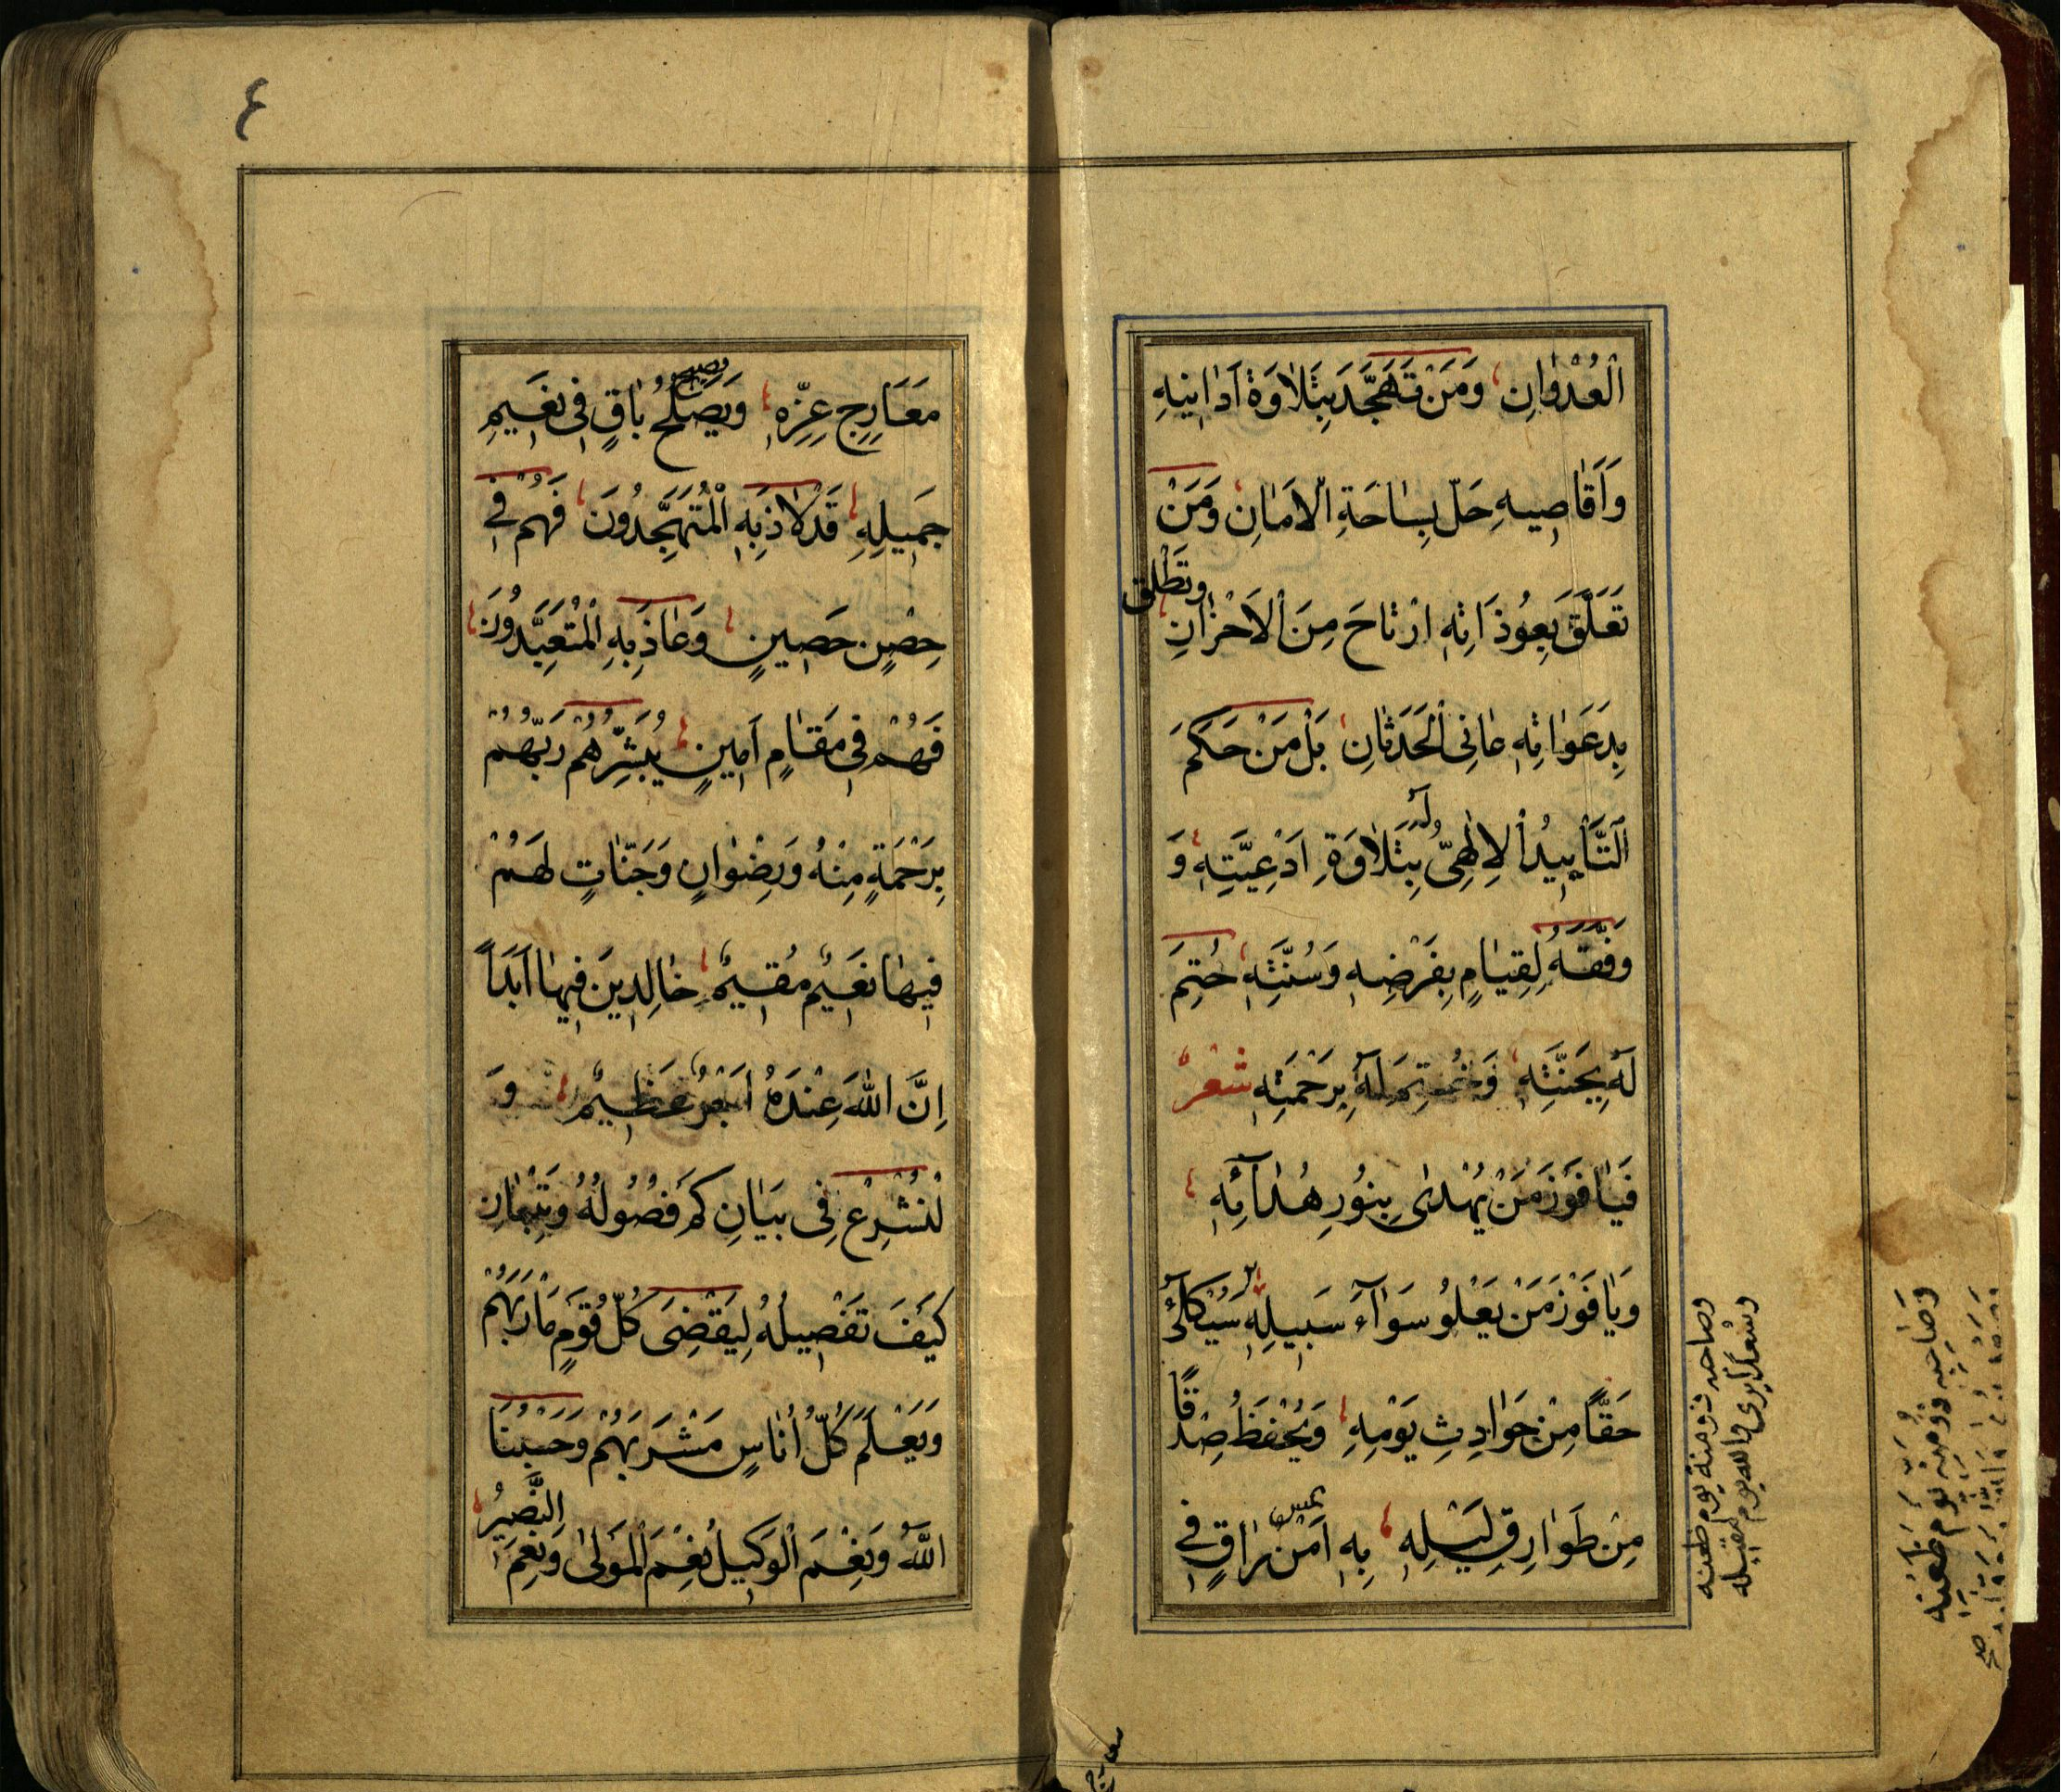 اَلْعُدْوٰانِ وَمَنْ تَهَجَّدَ بِتَلاٰوَةْ اَدٰانِيْهِ
وَاَقٰاصِيهِ حَلَّ بِسٰاحَةِ الْاَمٰانِ وَمَنْ
تَعَلَّقَ بِعُوذَاتِهِ ارْتٰاحَ مِنَ الْاَحْزٰانِ
وَتَطَلَّقَ
بِدَعَوٰاتِهِ عٰانِى الْحَدَثٰانِ بَلْ مَنْ حَكَمَ
لَهُ
اَلتَّأْيِيدُ الْاِلٰهِىُّ بِتَلاٰوَةِ اَدْعِيَّتِهِ وَ
وَفَّقَهُ لِقِيٰامٍ بِفَرْضِهِ وَسُنَّتِهِ حُتِمَ
لَهُ بِجَنَّتِهِ وَخُتِمَ لَهُ بِرَحْمَتِهِ شعْرٌ
فَيٰا فَوْزَ مَنْ يُهْدٰى بِنُورِ هُدٰائِهِ
وَيٰا فَوْزَ مَنْ يَعْلُو سَوَآءَ سَبِيلِهِ سَيُكْلَأُ
حَقًّا مِنْ حَوٰادِثِ يَوْمِهِ وَيُحْفَظُ صِدْقًا
مِنْ طَوٰارِقِ لَيْلِهِ بِهِ اَمَنٌ رٰاقٍ فِى
يمسى
معارج
مَعَارِجِ عِزِّهِ وَيَصْلُحُ بٰاقٍ فِى نَعِيمِ
ويصبح
جَمِيلِهِ قَدْ لاٰذَ بِهِ الْمُتَهَجِّدُونَ فَهُمْ فِى
حِصْنٍ حَصِينٍ وَعٰاذَ بِهِ الْمُتَعَبِّدُونَ
فَهُمْ فِى مَقٰامٍ اَمِينٍ يُبَشِّرُهُمْ رَبُّهُمْ
بِرَحْمَةٍ مِنْهُ وَرِضْوٰانٍ وَجَنّٰاتٍ لَهُمْ
فِيهٰا نَعِيمٌ مُقِيمٌ خٰالِدِينَ فِيهٰا اَبَدًا
اِنَّ اللهَ عِنْدَهُ اَجْرٌ عَظِيمٌ وَ
لْنَشْرَعْ فِى بَيٰانِ كَمْ فُصُولُهُ وَتِبْيٰانِ
كَيْفَ تَفْصِيلُهُ لِيَقْضِىَ كُلُّ قَوْمٍ مَأرَبَهُمْ
وَيَعْلَمَ كُلُّ اُنٰاسٍ مَشْرَبَهُمْ وَحَسْبُنَا
اَللهُ وَنِعْمَ الْوَكِيلُ نِعْمَ الْمَوْلٰى وَنِعْمَ
النَّصِيرُ
٤